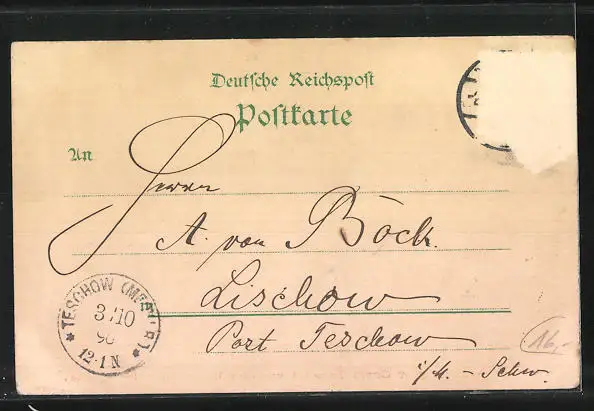 Deutsche Reichspost
Postkarte
An
Herrn
A. von Böck.
Lischow
Post Teschow
i/M. – Schw.
TESCHOW (MECKLB.)
3/10
12-1N
16,-